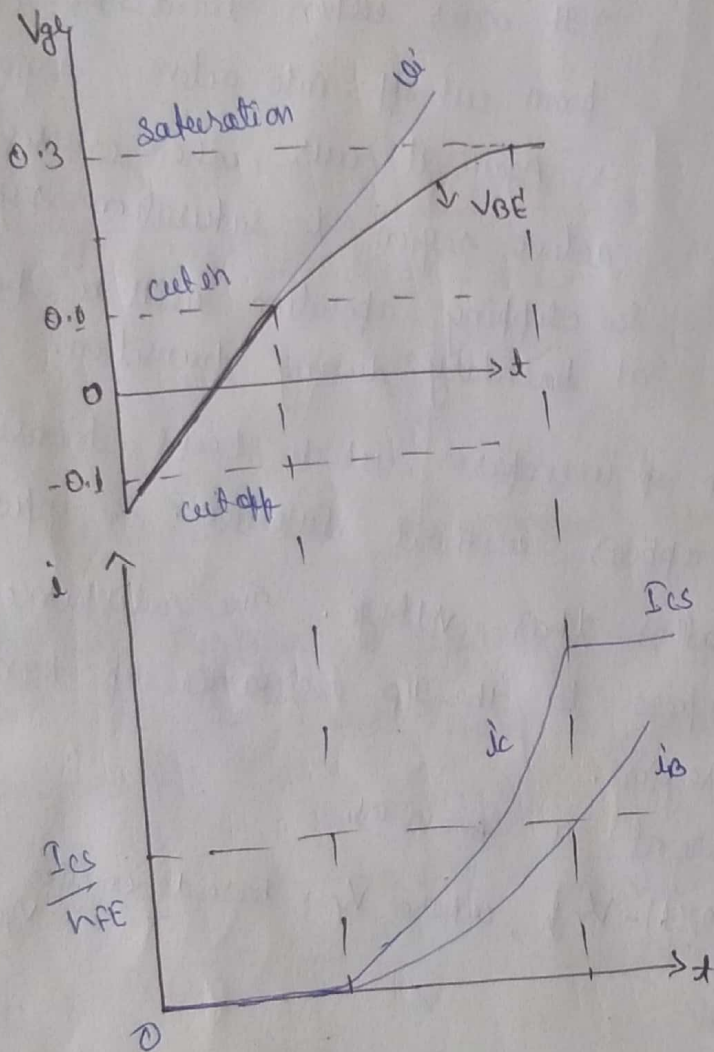 VBE
vi
saturation
0.3
VBE
cut in
0.1
t
0
-0.1
cutoff
i
Ics
ic
iB
Ics
hFE
t
0